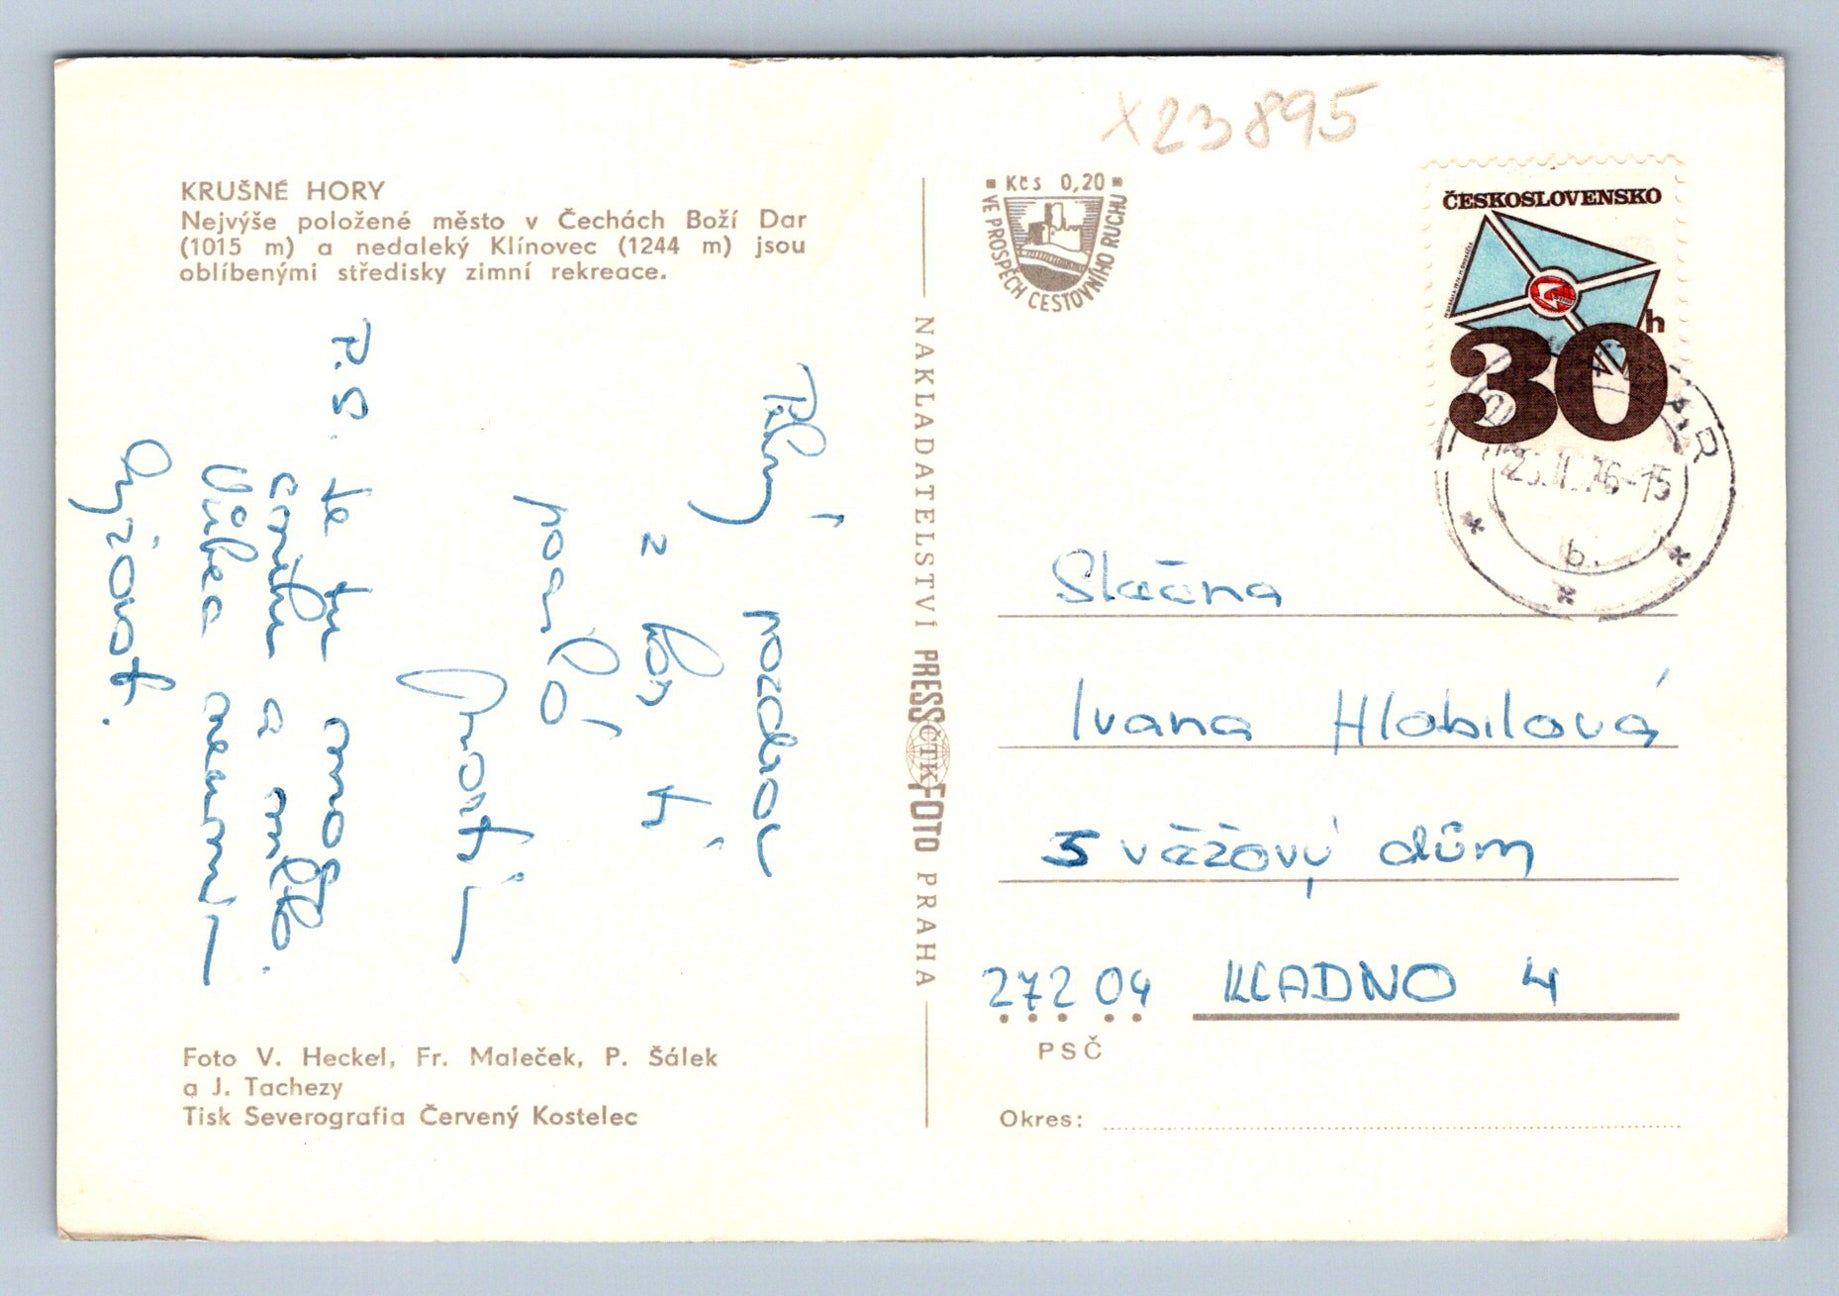 X23895
KRUŠNÉ HORY
Nejvýše položené město v Čechách Boží Dar
(1015 m) a nedaleký Klínovec (1244 m) jsou
oblíbenými středisky zimní rekreace.
Pěkný pozdrav
z hor ti
posílá
Martin
P.S. Je tu moc
sněhu a mlha.
Vůbec neumím
lyžovat.
Foto V. Heckel, Fr. Maleček, P. Šálek
a J. Tachezy
Tisk Severografia Červený Kostelec
NAKLADATELSTVÍ PRESSFOTO PRAHA
ČTK
Kčs 0,20
VE PROSPĚCH CESTOVNÍHO RUCHU
ČESKOSLOVENSKO
30h
76-15
b.
Slečna
Ivana Hlobilová
5 věžový dům
272 04 KLADNO 4
PSČ
Okres: